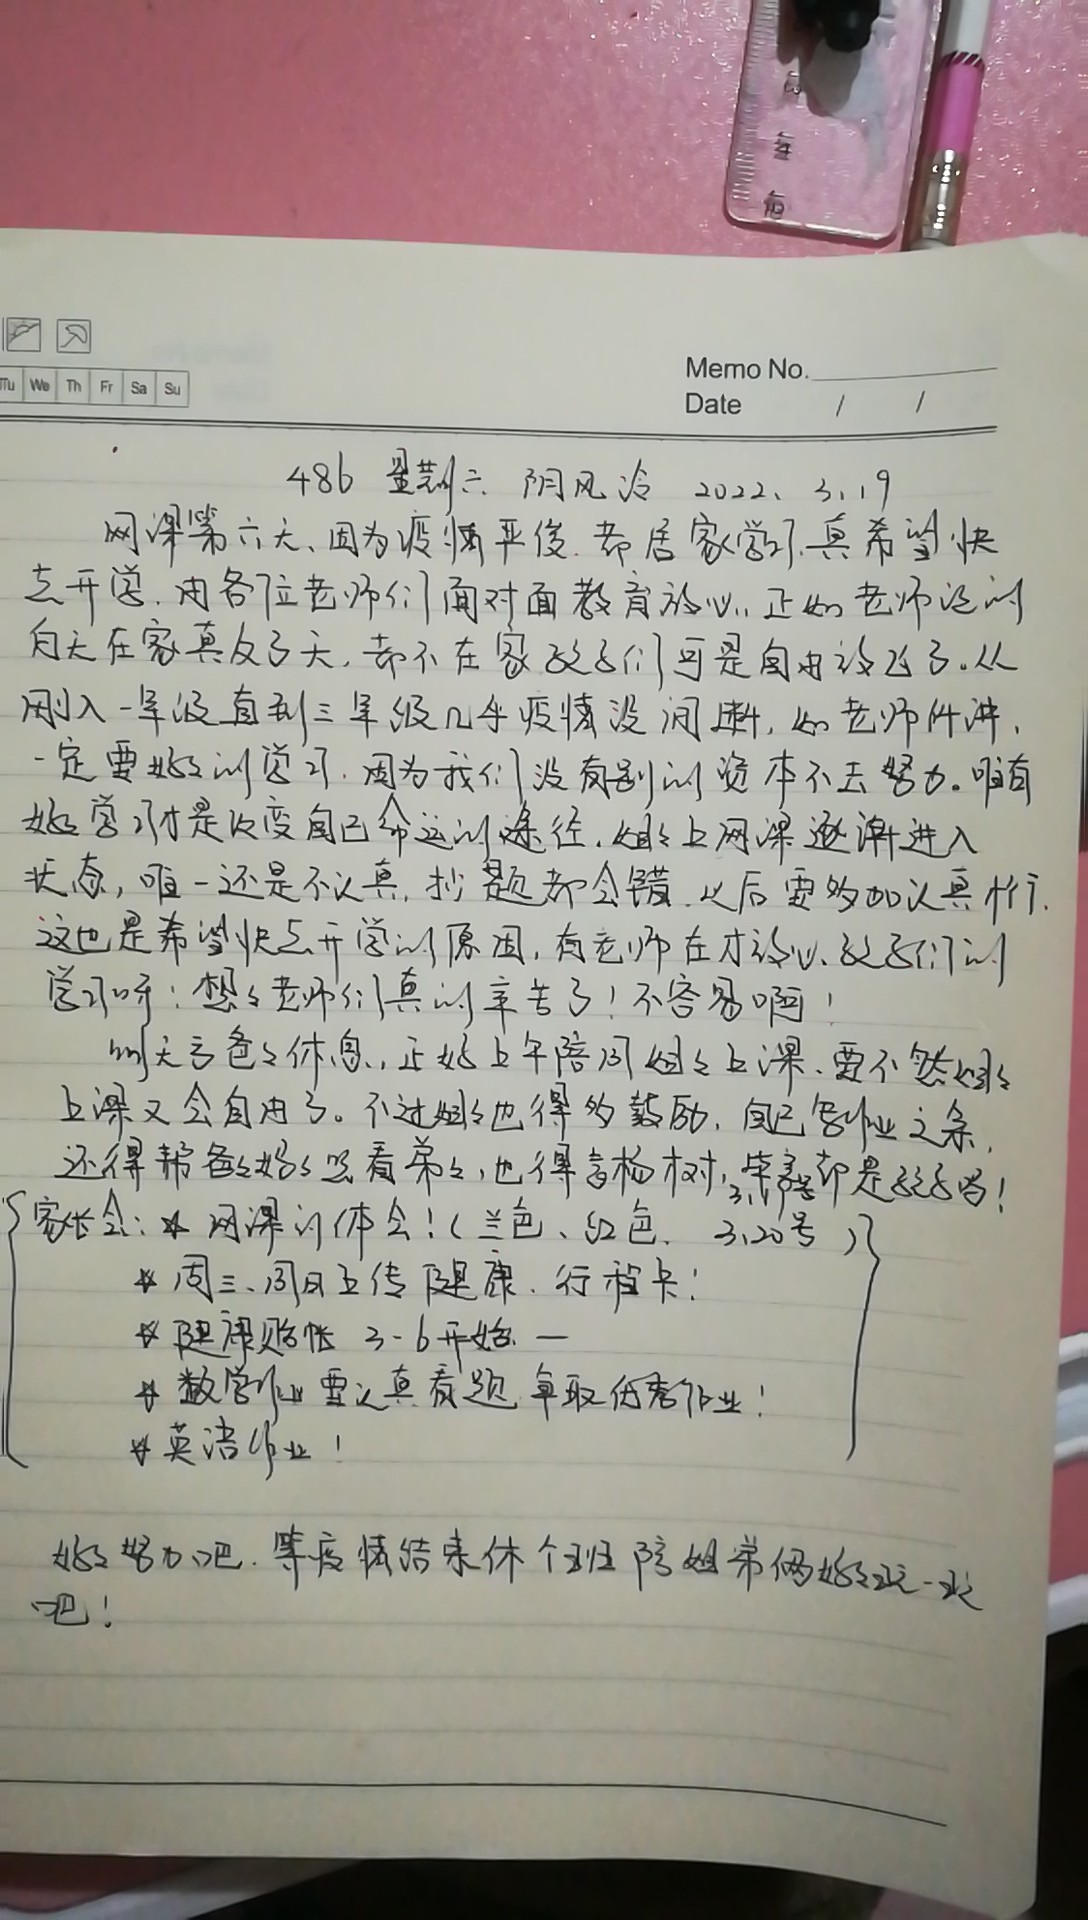 Tu We Th Fr Sa Su
Memo No.
Date / /
486 星期六 阴风冷 2022、3.19
网课第六天、因为疫情严俊.都居家学习.真希望快
点开学.由各位老师们面对面教育放心.正如老师说的
白天在家真反了天.都不在家孩子们可是自由放飞了.从
刚入一年级直到三年级几乎疫情没间断,如老师所讲,
一定要好好的学习.因为我们没有别的资本不去努力。唯有
好好学习才是改变自己命运的途径.姐姐上网课逐渐进入
状态,唯一还是不认真,抄题都会错.以后要多加认真才行.
这也是希望快点开学的原因,有老师在才放心、孩子们的
学习呀!想想老师们真的辛苦了!不容易啊!
明天爸爸休息.,正好上午陪同姐姐上课、要不然姐姐
上课又会自由了。不过姐姐也得多鼓励,自己写作业之余,
还得帮爸爸妈妈照看弟弟,也得 杨树, 都是孩子
家长会:* 网课的体会!(兰色、红色. 3.20号)
* 周三、周日上传健康.行程卡!
* 健康 3-6开始 —
* 数学作业要认真看题.争取优秀作业!
* 英语作业!
好好努力吧.等疫情结束休个班陪姐弟俩好好玩一玩
吧!